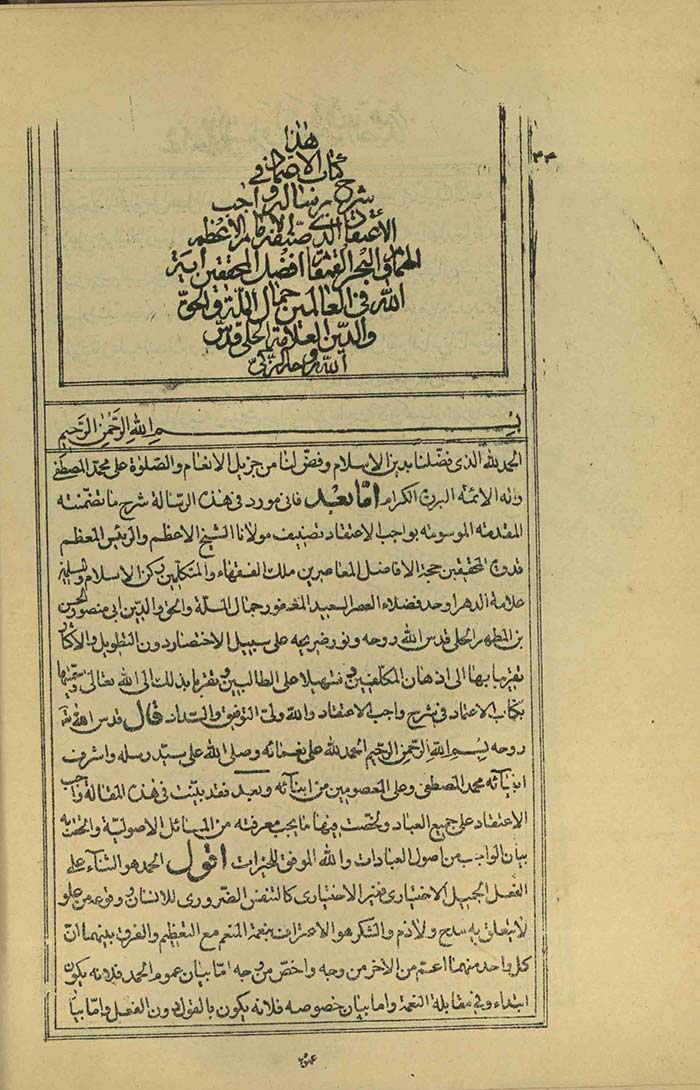 هذا
كتاب الاعتماد فى
شرح رسالة واجب
الاعتقاد الذى صنفه الامام الاعظم
الهمام البحر القمقام افضل المحققين اية
الله فى العالمين جمال الملة والحق
والدين العلامة الحلى قدس
الله روحه الزكى
٤٣
بسم الله الرحمن الرحيم
الحمد لله الذى فضلنا بدين الاسلام وفضّ لنا من جزيل الانعام والصلوة على محمد المصطفى
واله الائمة البررة الكرام اما بعد فانى مورد فى هذه الرسالة شرح ما تضمنته
المقدمة الموسومة بواجب الاعتقاد تصنيف مولانا الشيخ الاعظم والرئيس المعظم
قدوة المحققين حجة الافاضل المعاصرين ملك الفقهاء والمتكلمين ركن الاسلام والمسلمين
علامة الدهر اوحد فضلاء العصر السعيد المغفور جمال الملة والحق والدين ابى منصور الحسن
بن المطهر الحلى قدس الله روحه ونور ضريحه على سبيل الاختصار دون التطويل والاكثار
تقريبا بها الى اذهان المكلفين وتسهيلا على الطالبين وتقربا بذلك الى الله تعالى وسميتها
بكتاب الاعتماد فى شرح واجب الاعتقاد والله ولى التوفيق والسداد قال قدس الله
روحه بسم الله الرحمن الرحيم الحمد لله على نعمائه وصلى الله على سيد رسله واشرف
انبيائه محمد المصطفى وعلى المعصومين من ابنائه وبعد فقد بينت فى هذه المقالة واجب
الاعتقاد على جميع العباد ولخصت فيها ما يجب معرفته من المسائل الاصولية والحقت به
بيان الواجب من اصول العبادات والله الموفق للخيرات اقول الحمد هو الثناء على
الفعل الجميل الاختيارى فغير الاختيارى كالتنفس الضرورى للانسان و وقوعه من علو
لا يتعلق به مدح ولا ذم والشكر هو الاعتراف بنعمة المنعم مع التعظيم والفرق بينهما ان
كل واحد منهما اعم من الاخر من وجه واخص من وجه اما بيان عموم الحمد فلانه يكون
ابتداء وفى مقابلة النعمة واما بيان خصوصه فلانه يكون بالقول دون الفعل واما بيان
عموم